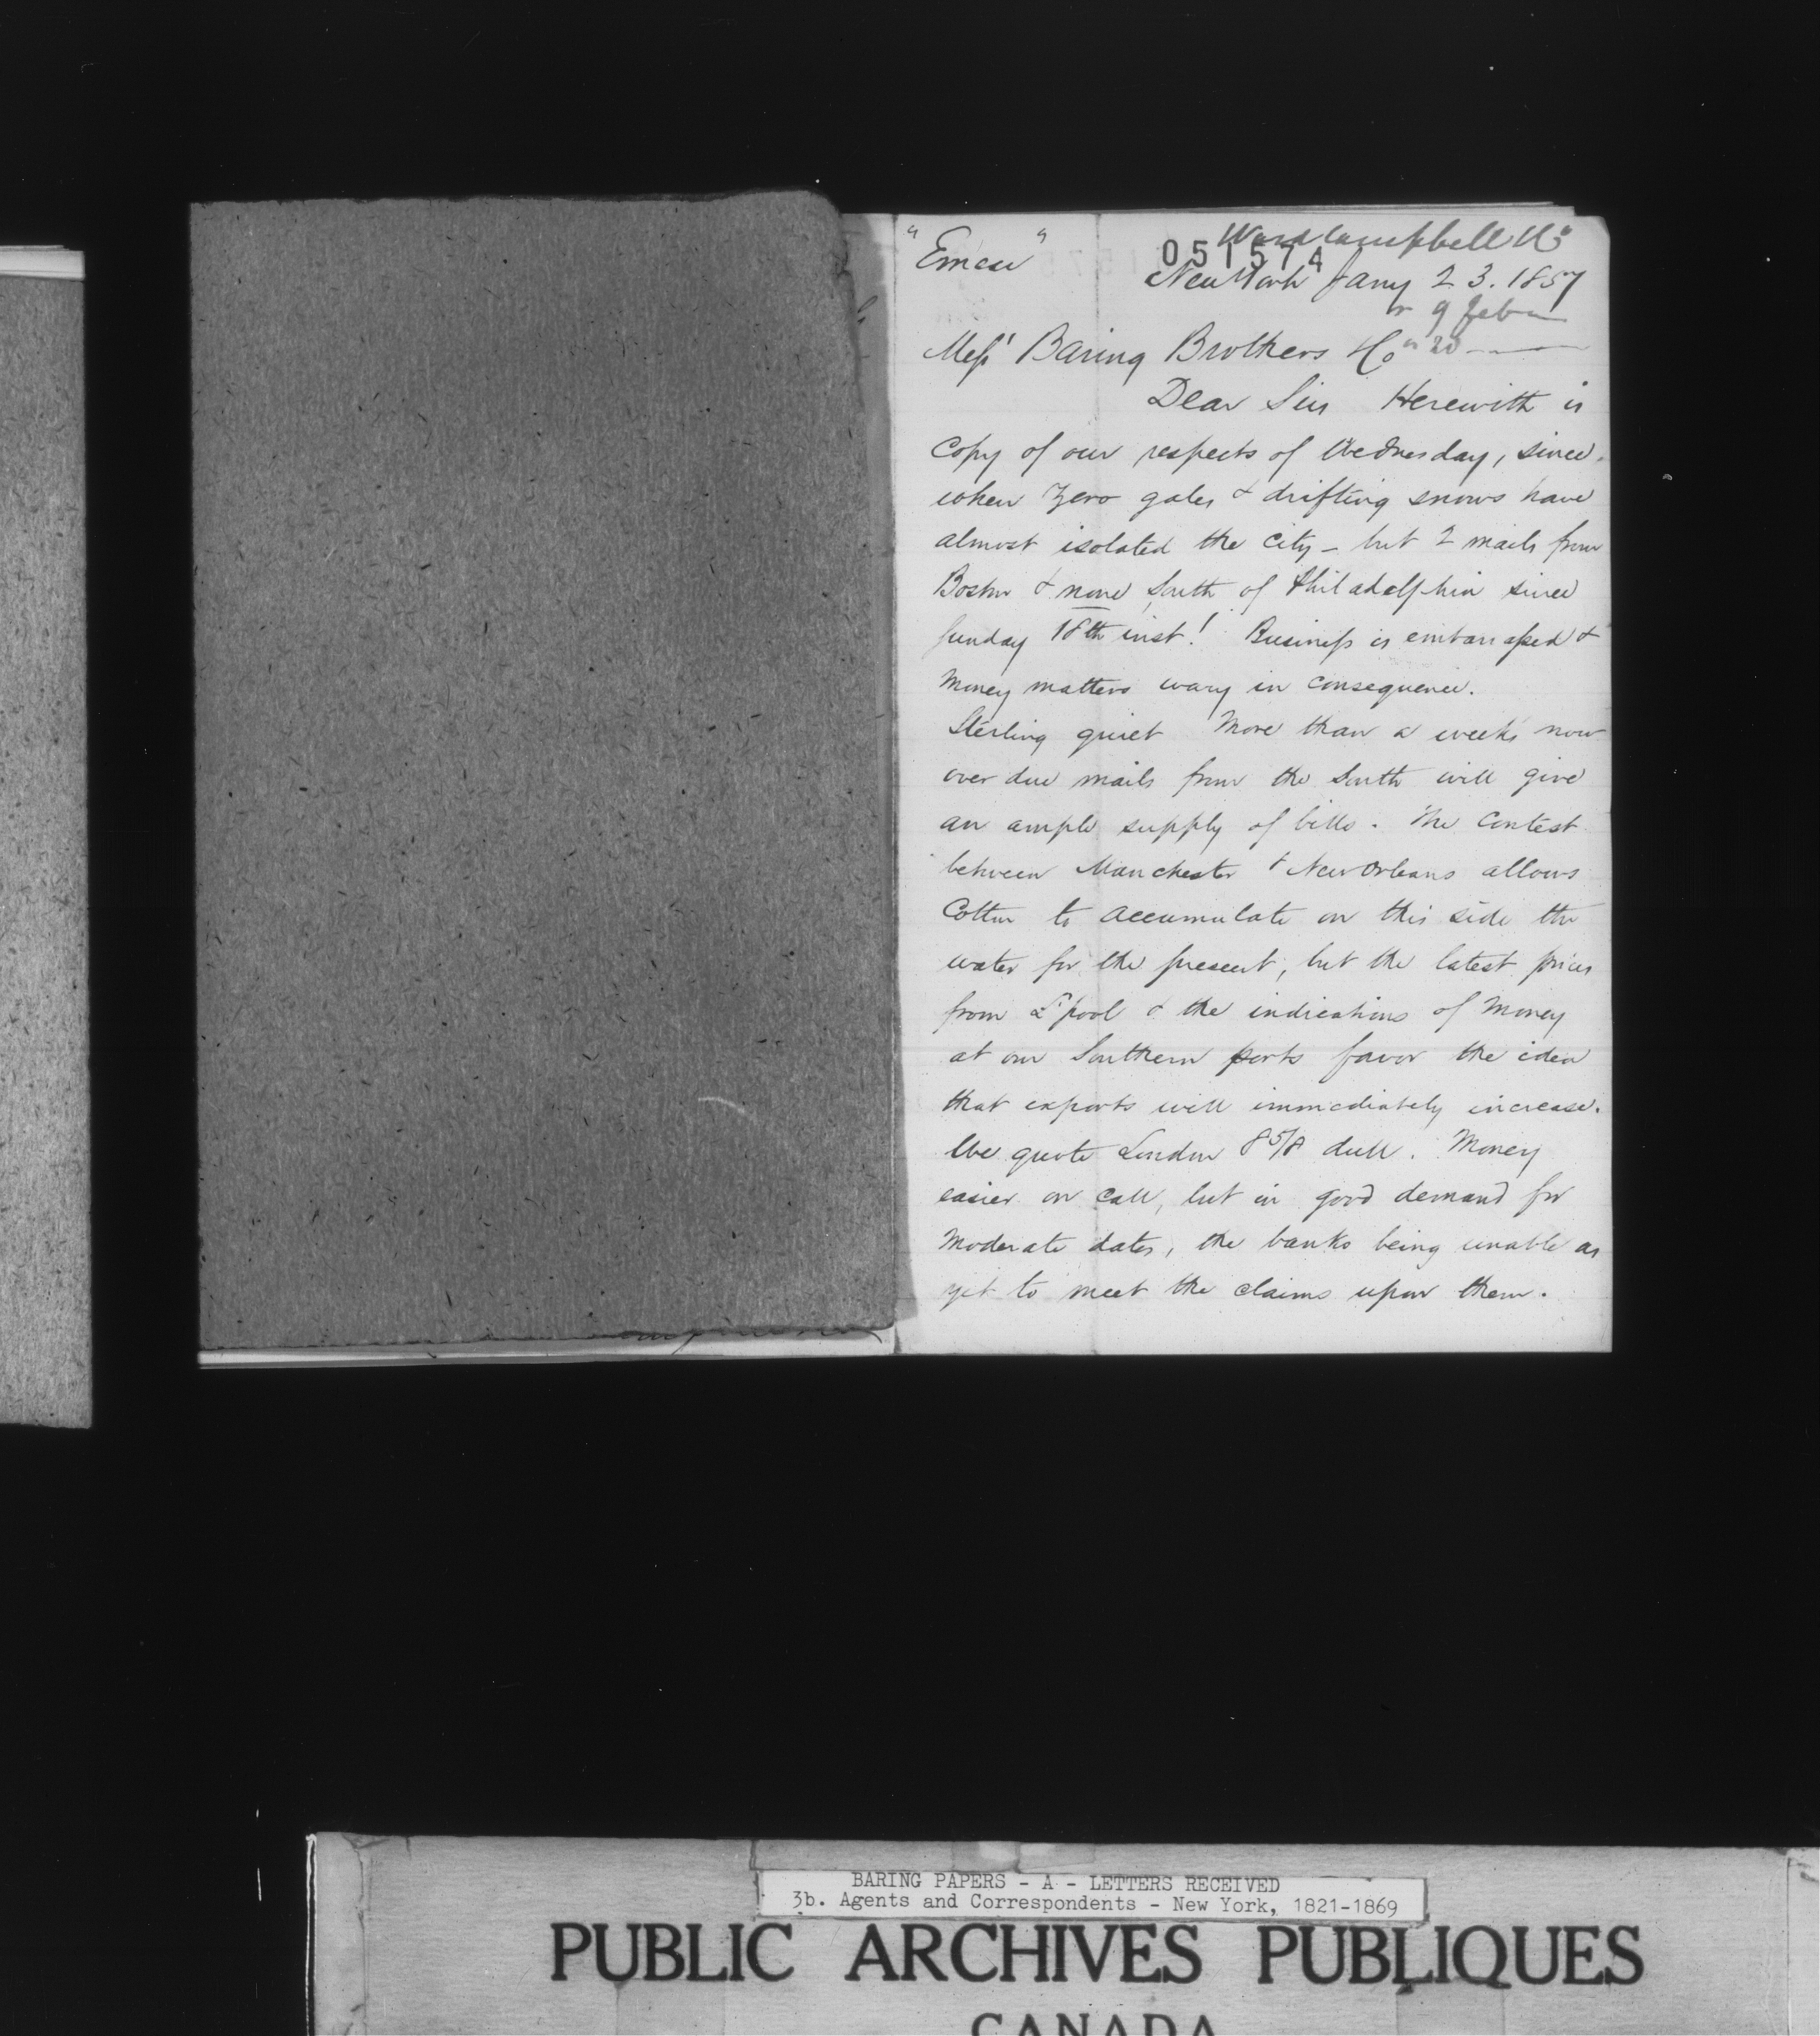 " Emeu "
Ward Campbell & Co
051574
New York Jany 23. 1857
r 9 Feb
Messrs Baring Brothers & Co " 20
Dear Sirs Herewith is
Copy of our respects of Wednesday, since
when Zero gales & drifting snows have
almost isolated the City - but 2 mails from
Boston & none South of Philadelphia since
Sunday 18th inst! Business is embarrassed &
Money matters wary in consequence.
Sterling quiet More than a weeks now
over due mails from the South will give
an ample supply of bills. The Contest
between Manchester & New Orleans allows
Cotton to accumulate on this side the
water for the present, but the latest prices
from L'pool & the indications of Money
at our Southern ports favor the idea
that exports will immediately increase.
We quote London 8 5/8 dull. Money
easier on call, but in good demand for
Moderate dates, the banks being unable as
yet to meet the claims upon them.
BARING PAPERS - A - LETTERS RECEIVED
3b. Agents and Correspondents - New York, 1821-1869
PUBLIC ARCHIVES PUBLIQUES
CANADA